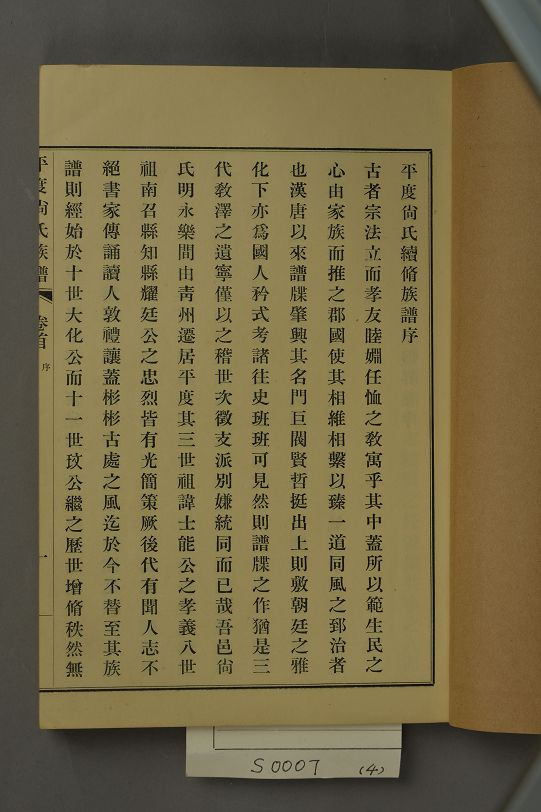 平度尙氏續脩族譜序
古者宗法立而孝友睦婣任恤之敎寓乎其中蓋所以範生民之
心由家族而推之郡國使其相維相繫以臻一道同風之郅治者
也漢唐以來譜牒肇興其名門巨閥賢哲挺出上則敷朝廷之雅
化下亦爲國人矜式考諸往史班班可見然則譜牒之作猶是三
代敎澤之遺寧僅以之稽世次徵支派別嫌統同而已哉吾邑尙
氏明永樂間由靑州遷居平度其三世祖諱士能公之孝義八世
祖南召縣知縣耀廷公之忠烈皆有光簡策厥後代有聞人志不
絕書家傳誦讀人敦禮讓蓋彬彬古處之風迄於今不替至其族
譜則經始於十世大化公而十一世玫公繼之歷世增脩秩然無
平度尙氏族譜 卷首 序 一
S0007 (4)